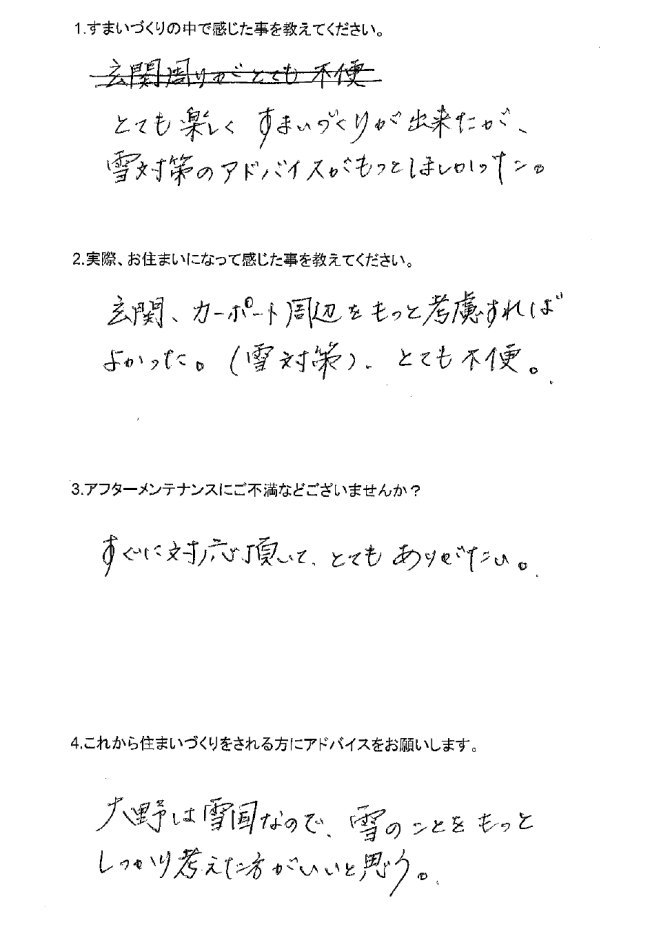 1.すまいづくりの中で感じた事を教えてください。
玄関周りがとても不便
とても楽しくすまいづくりが出来たが、
雪対策のアドバイスがもっとほしかった。
2.実際、お住まいになって感じた事を教えてください。
玄関、カーポート周辺をもっと考慮すれば
よかった。(雪対策)、とても不便。
3.アフターメンテナンスにご不満などございませんか?
すぐに対応頂いて、とてもありがたい。
4.これから住まいづくりをされる方にアドバイスをお願いします。
大野は雪国なので、雪のことをもっと
しっかり考えた方がいいと思う。